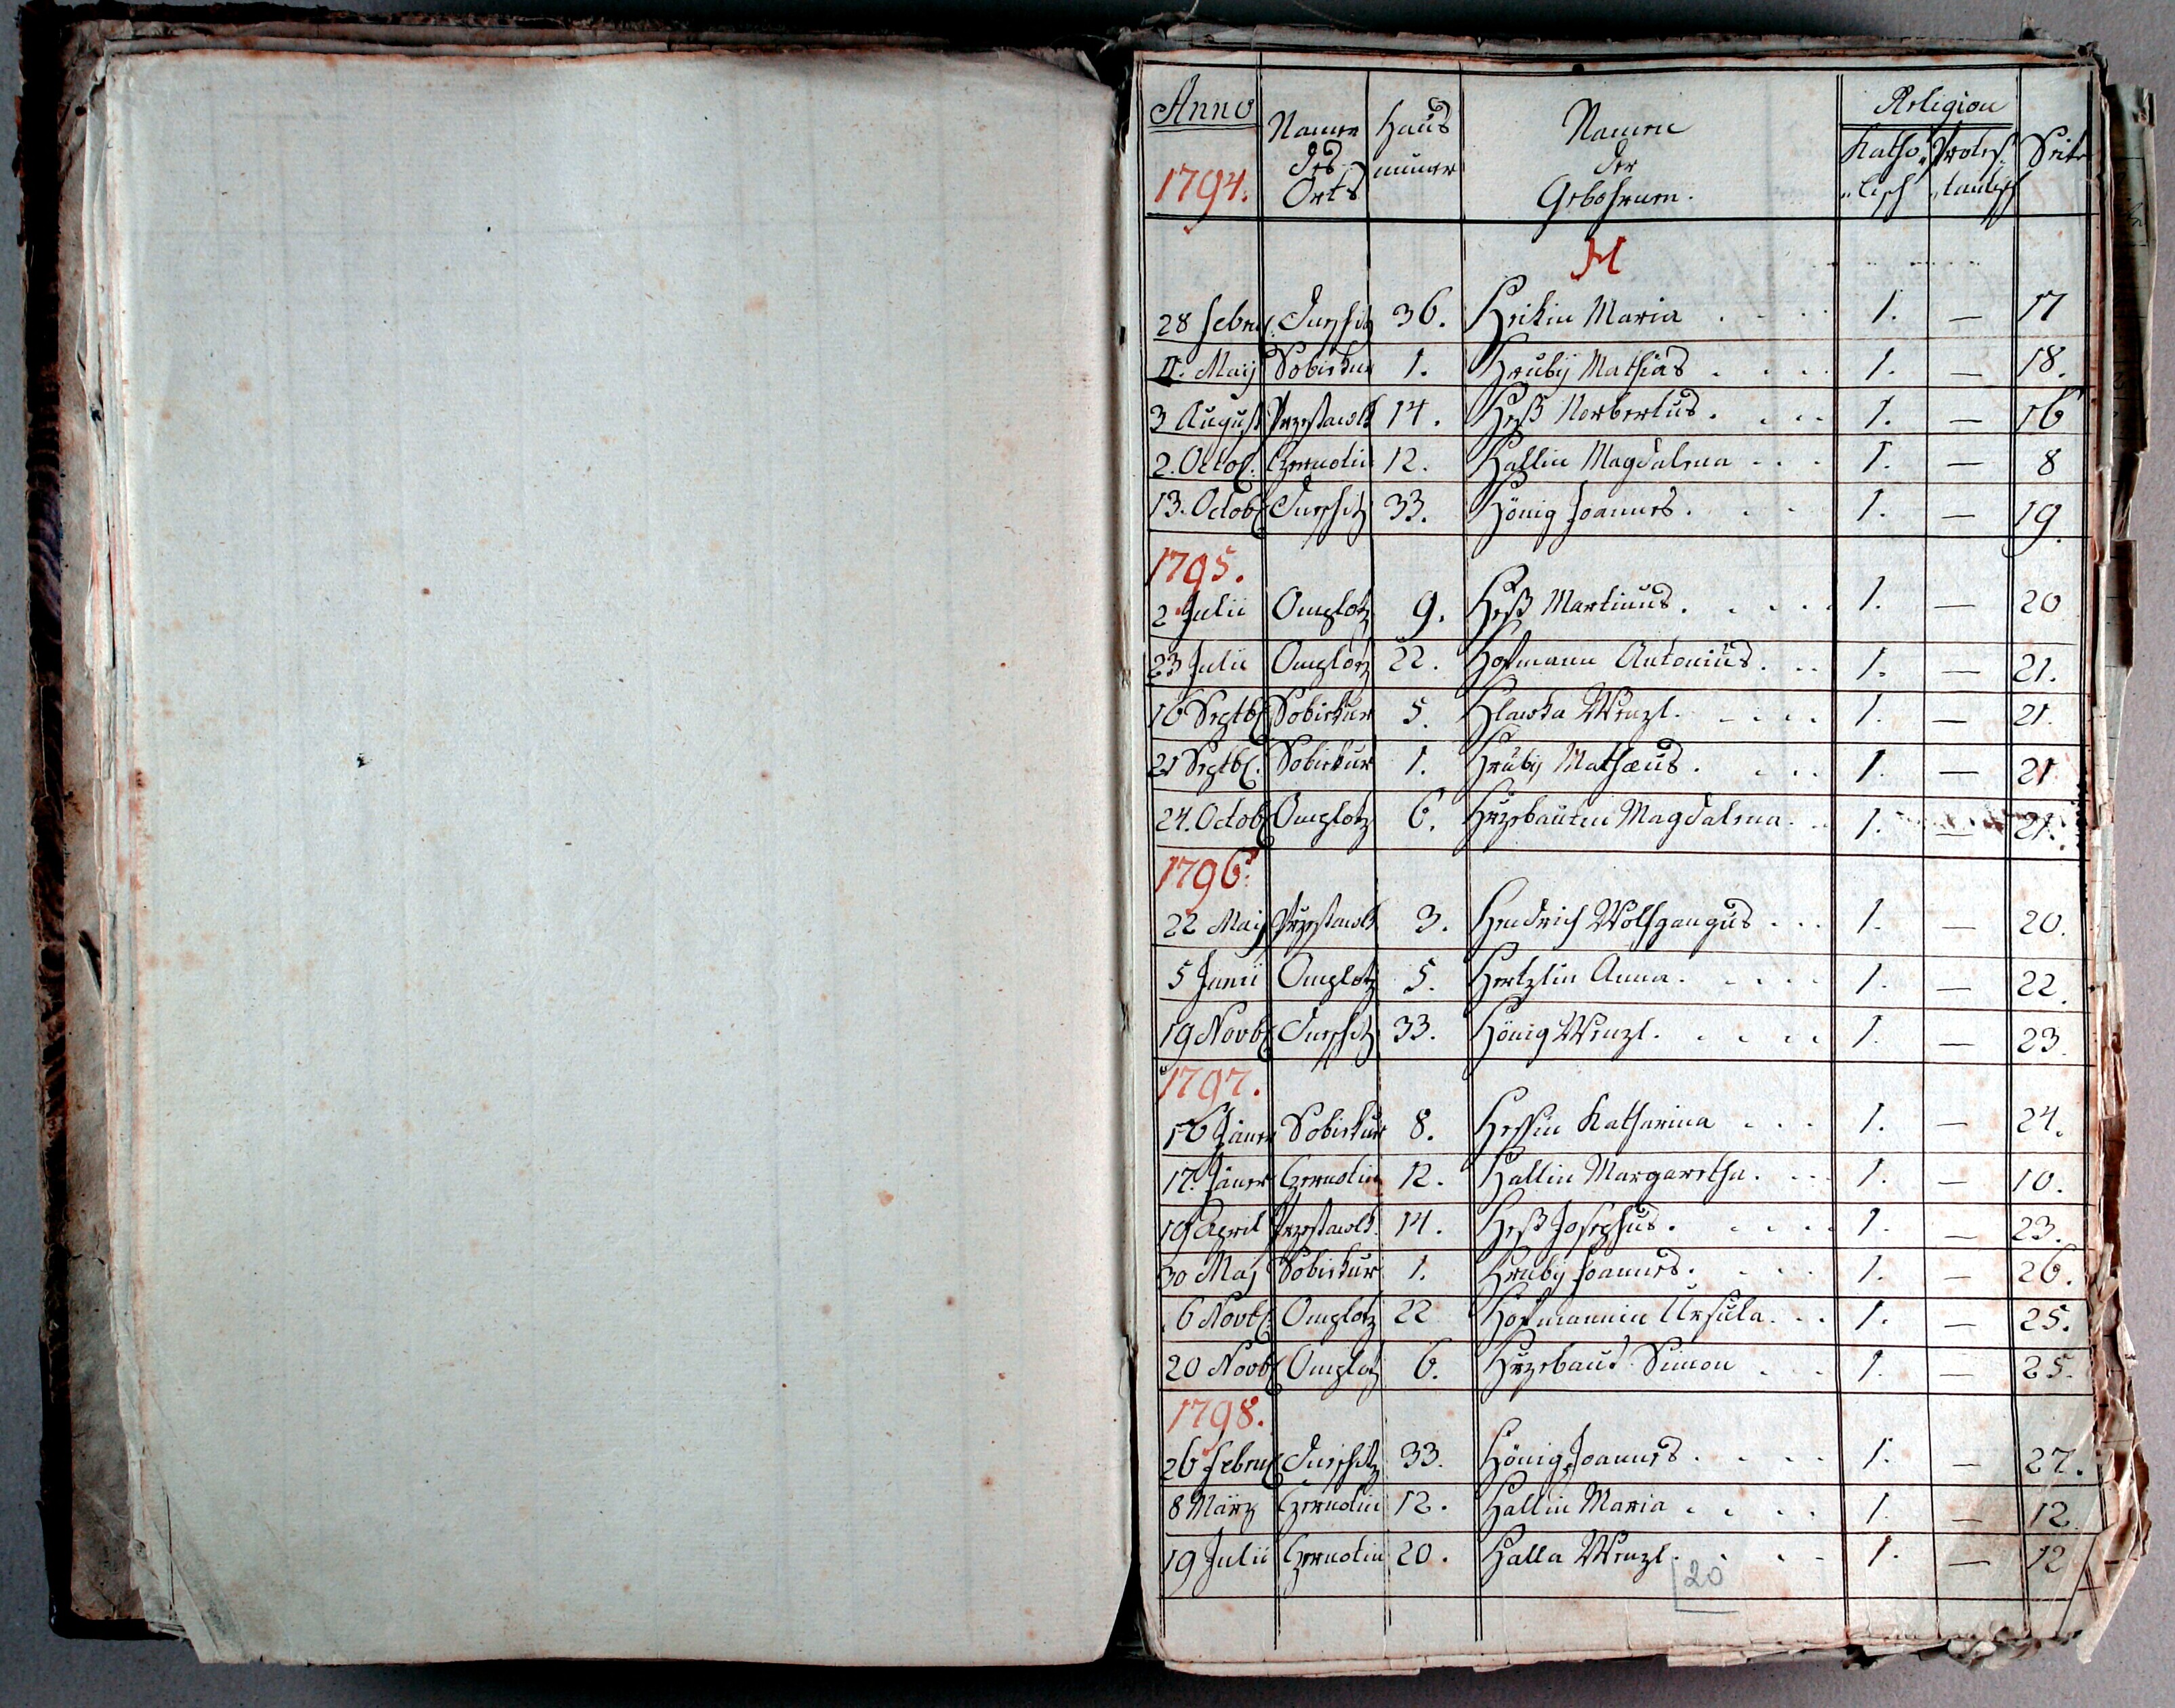 Anno Namen Haus Namen Religion
des numer der Katho„ Protes„ Seite
1794. Orts Gebohrnen. „lisch „tantisch
H
28 Febru: Jurschitz 36. Heikin Maria . . . . 1. — 17
11. Maij Sobiekur 1. Hruby Mathias . . . . 1. — 18.
3 August Przestawlk 14. Heß Norbertus . . . . 1. — 16
2. Octob: Czernotin 12. Hallin Magdalena . . . 1. — 8
13. Octob: Jurschitz 33. Hönig Joannes . . . 1. — 19.
1795.
2 Julii Omplotz 9. Heß Martinus . . . . . 1. — 20
23 Julii Omplotz 22. Hofmann Antonius . . . 1. — 21.
16 Septb: Sobiekur 5. Hlawka Wenzl . . . . . 1. — 21.
21 Septb: Sobiekur 1. Hruby Mathæus . . . . 1. — 21
24. Octob: Omplotz 6. Hrzebautin Magdalena . . 1. — 21.
1796.
22 Maij Przestawlk 3. Hendrich Wolfgangus . . . 1. — 20.
5 Junii Omplotz 5. Hertzlin Anna . . . . . 1. — 22.
19 Novb: Jurschitz 33. Hönig Wenzl . . . . . 1. — 23.
1797.
16 Jäner Sobiekur 8. Hessin Katharina . . . 1. — 24.
17. Jäner Czernotin 12. Hallin Margaretha . . . 1. — 10.
19 April Przestawlk. 14. Heß Josephus . . . . . 1. — 23.
30 Maj Sobiekur 1. Hruby Joannes . . . . 1. — 26.
6 Novb: Omplotz 22 Hofmannin Ursula . . . 1. — 25.
20 Novb: Omplotz 6. Hrzebaut Simon . . . 1. — 25.
1798.
26 Febru: Jurschitz 33. Hönig Joannes . . . . 1. — 27.
8 März Czernotin 12. Hallin Maria . . . . 1. — 12.
19 Julii Czernotin 20. Halla Wenzl . . . . 1. — 12
20